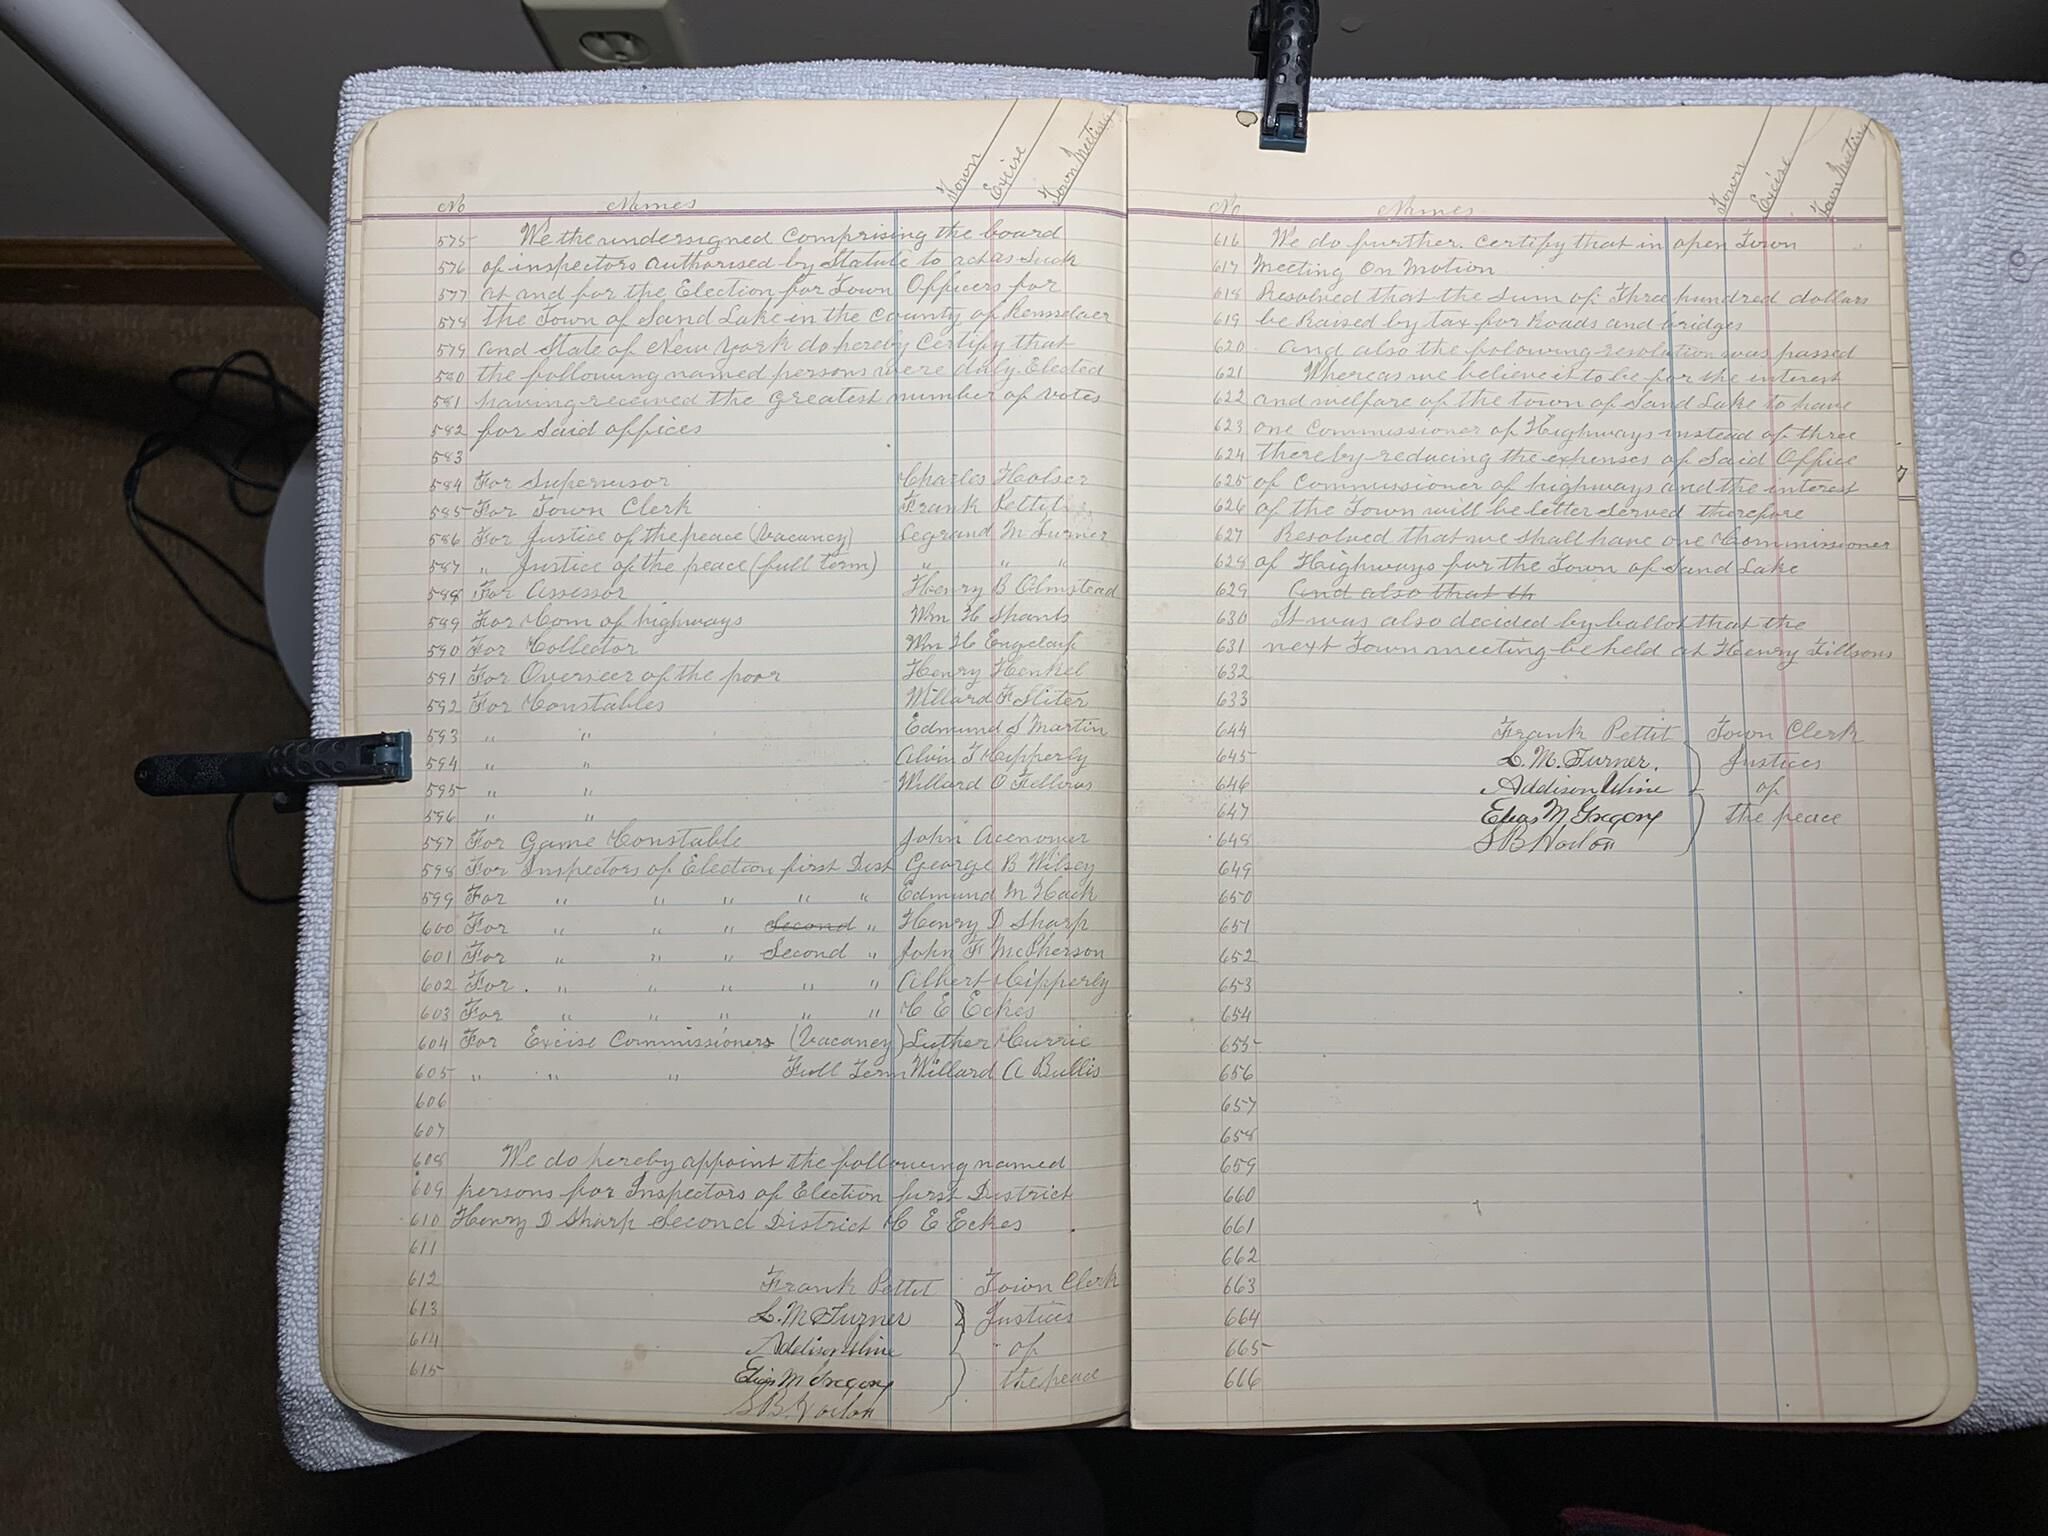 No Names Town Excise Town Meeting
575 We the undersigned Comprising the board
576 of inspectors authorised by Statute to act as Such
577 at and for the Election for Town Officers for
578 the Town of Sand Lake in the County of Rensselaer
579 and State of New York do hereby Certify that
580 the following named persons were duly Elected
581 having received the greatest number of votes
582 for Said offices
583
584 For Supervisor Charles Holser
585 For Town Clerk Frank Pettit
586 For Justice of the peace (Vacancy) Legrand M Turner
587 " Justice of the peace (full term) " " "
588 For Assessor Henry B Olmstead
589 For Com of highways Wm H Shants
590 For Collector Wm H
591 For Overseer of the poor Henry Henkel
592 For Constables Willard F Sliter
593 " " Edmund S Martin
594 " " Alvin T Cipperly
595 " " Willard O Fellows
596 " "
597 For Game Constable John
598 For Inspectors of Election first Dist George B Wilsey
599 For " " " " " Edmund M Hack
600 For " " " Second " Henry D Sharp
601 For " " " Second " John F McPherson
602 For " " " " " Albert Cipperly
603 For " " " " " C E Eckes
604 For Excise Commissioners (Vacancy) Luther Currie
605 " " " Full Term Willard A Bullis
606
607
608 We do hereby appoint the following named
609 persons for Inspectors of Election first District
610 Henry D Sharp Second District C E Eckes
611
612 Frank Pettit Town Clerk
613 L. M. Turner Justices
614 Addison Uline of
615 Elias M Gregory the peace
S B Horton
No Names Town Excise Town Meeting
616 We do further. Certify that in open Town
617 Meeting On Motion
618 Resolved that the Sum of Three hundred dollars
619 be Raised by tax for Roads and bridges
620 and also the folowing resolution was passed
621 Whereas we believe it to be for the interest
622 and welfare of the town of Sand Lake to have
623 one Commissioner of Highways instead of three
624 thereby reducing the expenses of Said Office
625 of Commissioner of highways and the interest
626 of the Town will be better served therefore
627 Resolved that we shall have one Commissioner
628 of Highways for the Town of Sand Lake
629 And also that th
630 It was also decided by ballot that the
631 next Town meeting be held at Henry Tillsons
632
633
644 Frank Pettit Town Clerk
645 L. M. Turner. Justices
646 Addison Uline of
647 Elias M Gregory the peace
648 S B Horton
649
650
651
652
653
654
655
656
657
658
659
660
661
662
663
664
665
666